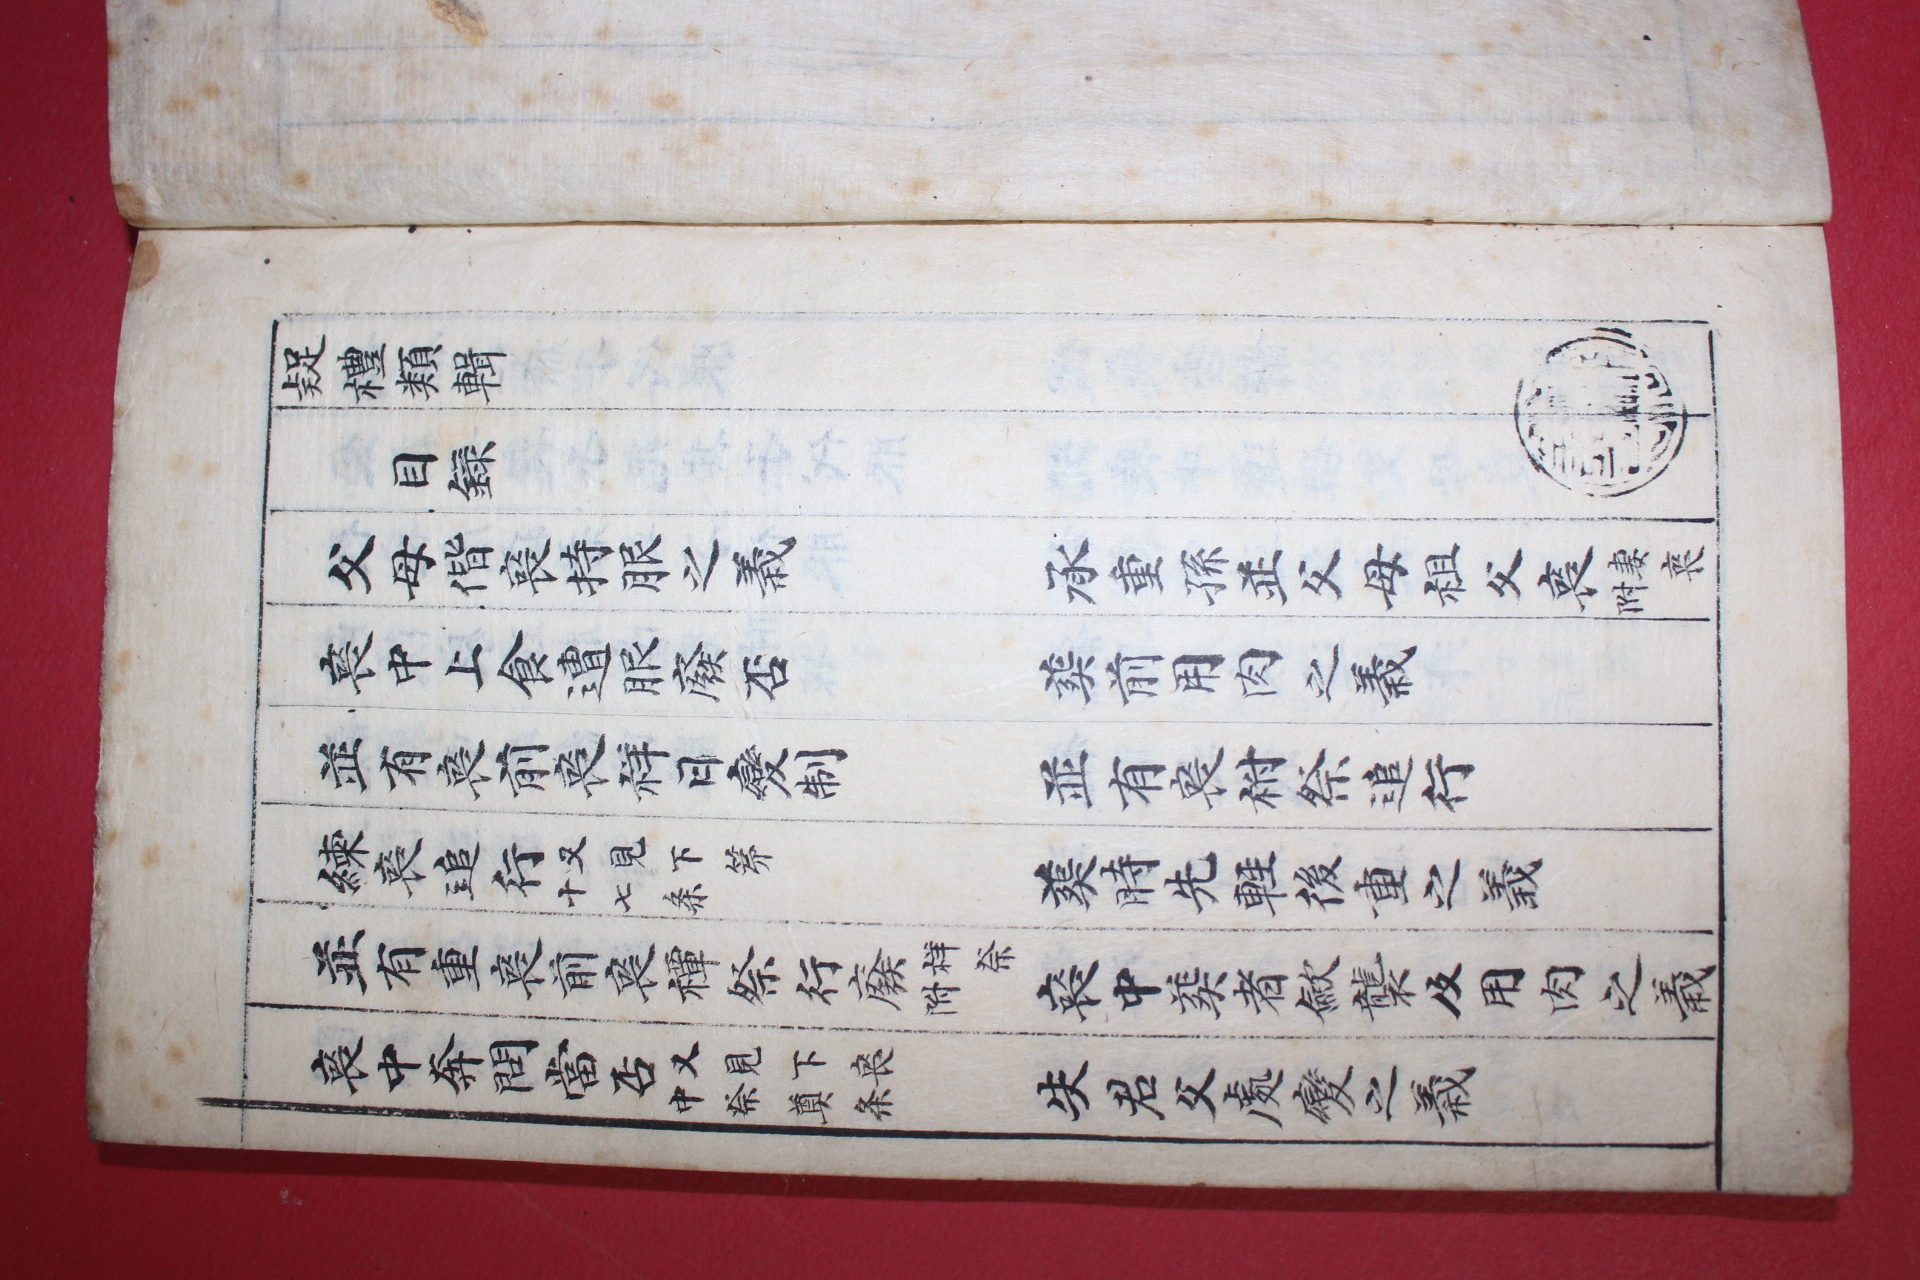 疑禮類輯
目錄
父母偕喪持服之義　承重孫並父母祖父喪妻喪附
喪中上食遭服廢否　葬前用肉之義
並有喪前喪祥日變制　並有喪祔祭追行
練喪追行又見下第十七条　葬時先輕後重之義
並有重喪前喪禫祭行廢祥祭附　喪中葬者斂襲及用肉之義
喪中奔問當否又見下喪中祭奠条　失君父處變之義